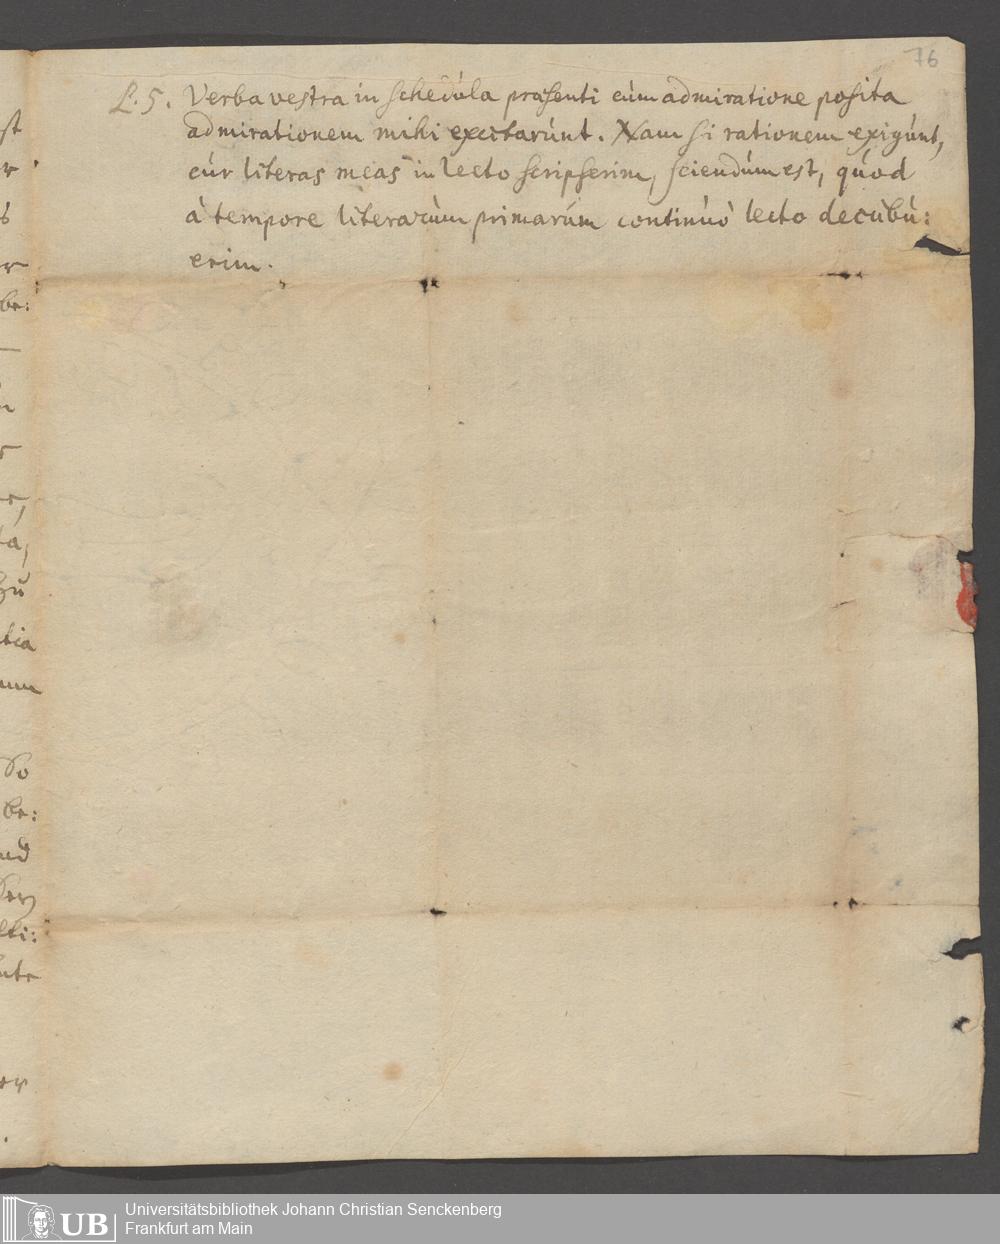 76
P. S. Verba vestra in schedula præsenti cùm admiratione posita
admirationem mihi excitarunt. Nam si rationem exigunt,
cur literas meas in lecto scripserim, sciendum est, quod
à tempore literarum primarum continuò lecto decubu:
erim.
st
r
be:
r,
ta,
zu
tia
um
So
be:
nd
ti:
ute
er
UB
Universitätsbibliothek Johann Christian Senckenberg
Frankfurt am Main